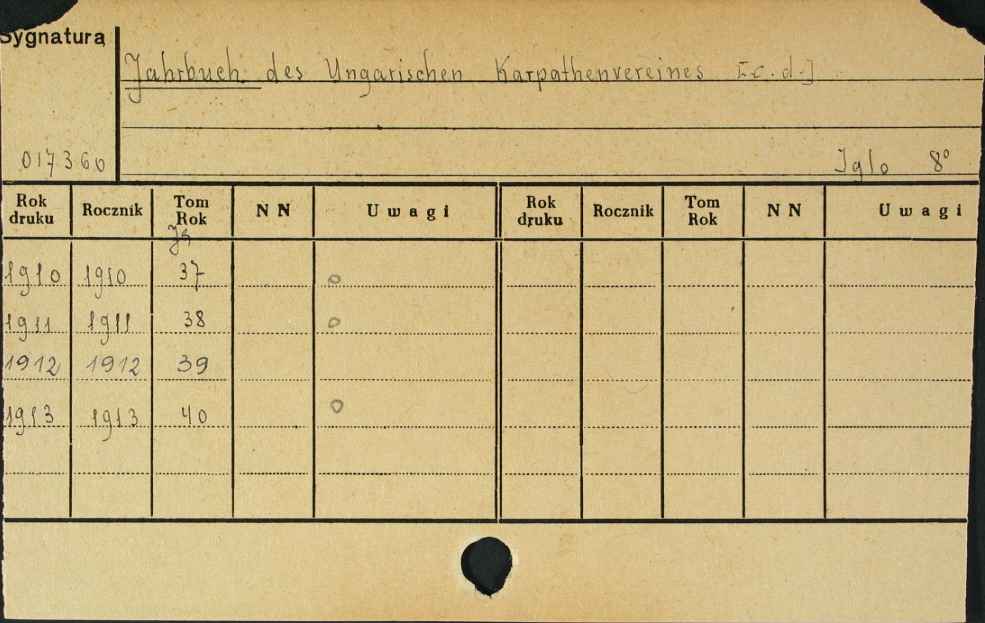 Sygnatura
Jahrbuch des Ungarischen Karpathenvereines [c.d.]
017360
Iglo 8°
Rok druku Rocznik Tom Rok NN Uwagi Rok druku Rocznik Tom Rok NN Uwagi
Jg
1910 1910 37 o
1911 1911 38 o
1912 1912 39
1913 1913 40 o